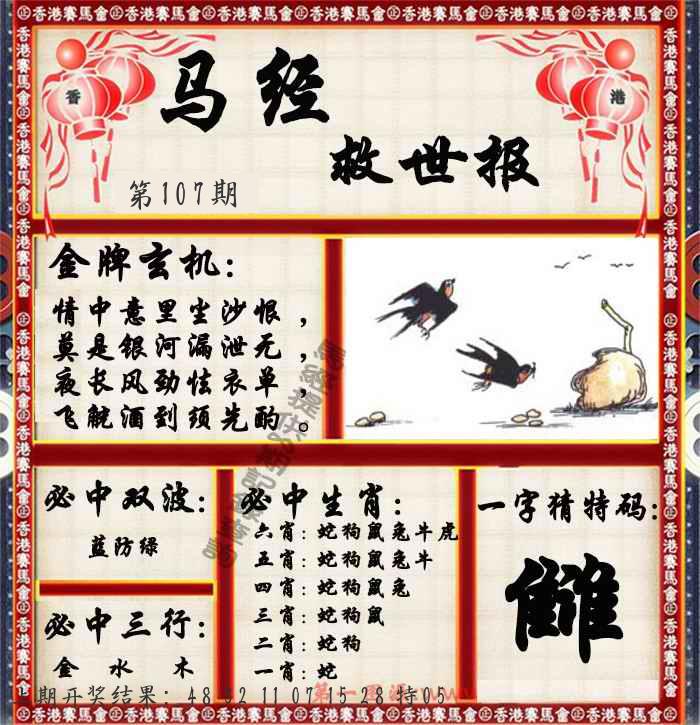 香 港
马经
救世报
第107期
金牌玄机：
情中意里尘沙恨，
莫是银河漏泄无，
夜长风劲怯衣单，
飞觥酒到须先酌。
必中双波：
蓝防绿
必中三行：
金 水 木
必中生肖：
六肖：蛇狗鼠兔牛虎
五肖：蛇狗鼠兔牛
四肖：蛇狗鼠兔
三肖：蛇狗鼠
二肖：蛇狗
一肖：蛇
一字猜特码：
雔
期开奖结果：48 02 11 07 15 28 特05
香港賽馬會